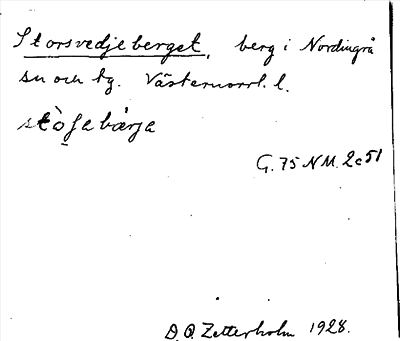 Storsvedjeberget, berg i Nordingrå
sn och tg. Västernorrl. l.
G. 75 NM. 2c51
D. O. Zetterholm 1928.